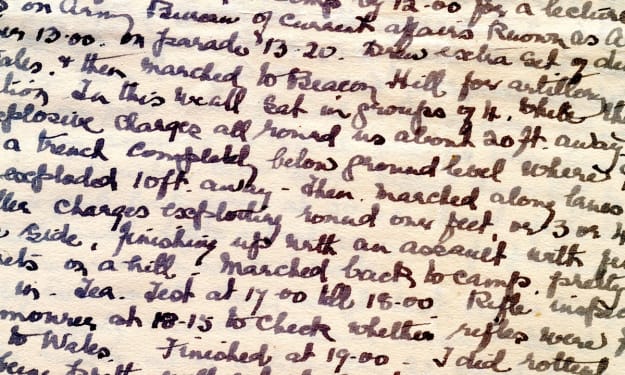 on Army Bureau of Current Affairs Known as A
13-00. on parade 13-20. Drew extra set of
& then marched to Beacon Hill for artillery
In this we all sat in groups of 4. while
explosive charges all round us about 20ft. away
a trench completely below ground level where
exploded 10ft. away - Then marched along lanes
charges exploding round our feet, or 3 or 4
side, finishing up with an assault with
on a hill. Marched back to camp. pretty
in - Tea. Test at 17-00 till 18-00 Rifle
at 18-15 to check whether rifles were
to Wales. Finished at 19-00 - I did rotten